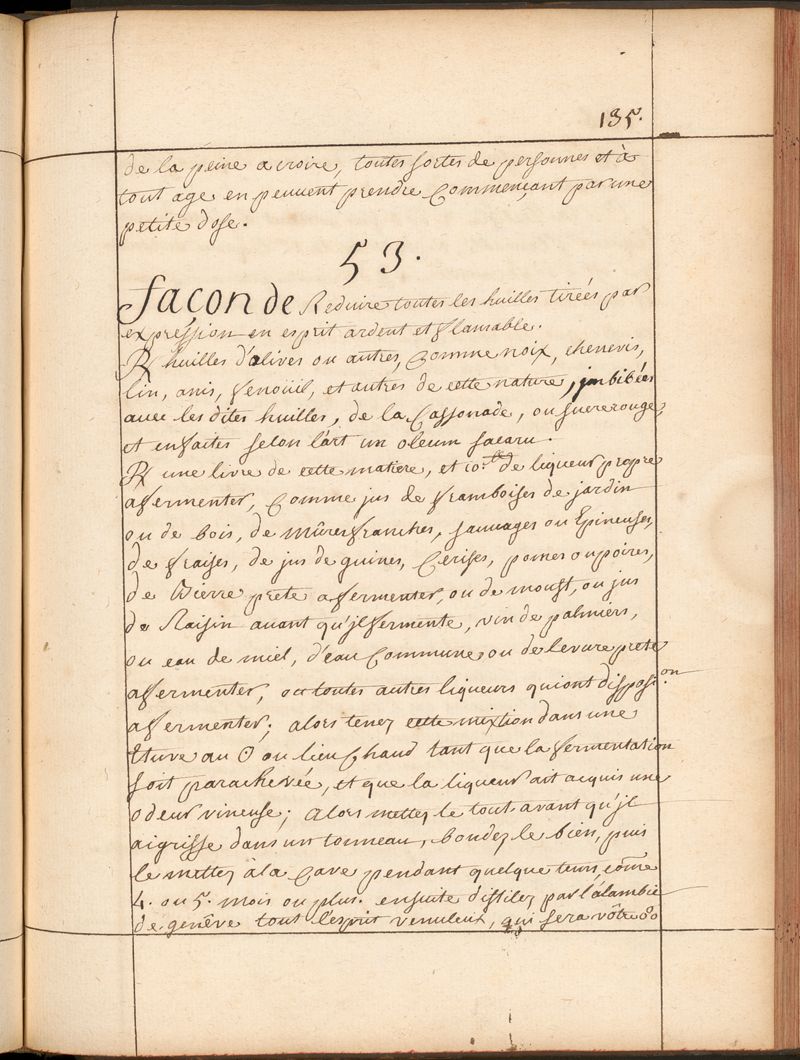 135.
de la peine a croire, toutes sortes de personnes et à
tout age en peuuent prendre Commençant par une
petite dose.
53.
façon de Reduire toutes les huilles tirées par
expression en esprit ardent et flamable.
℞ huilles d'olives ou autres, Comme noix, chenevis,
lin, anis, fenoüil, et autres de cette nature, jmbibées
avec les dites huilles, de la Cassonade, ou sucre rouge,
et en faites selon l'art un oleum sacaru.
℞ une livre de cette matiere, et 10. de liqueur propre
a fermenter, Comme jus de framboises de jardin
ou de bois, de mûres franches, sauuages ou Epineuses,
de fraises, de jus de guines, Cerises, pomes ou poires,
de Bierre prete a fermenter, ou de moust, ou jus
de Raisin auant qu'jl fermente, vin de palmiers,
ou eau de miel, d'eau Commune ou de levure prete
a fermenter, ou toutes autres liqueurs qui ont disposi.on
a fermenter; alors tenez cette mixtion dans une
Etuve au ʘ ou lieu Chaud tant que la fermentation
soit parachevée, et que la liqueur ait acquis une
odeur vineuse; Alors mettez le tout avant qu'jl
aigrisse dans un tonneau, bondez le bien, puis
le mettez à la Cave pendant quelque tems, cōme
4. ou 5. mois ou plus. ensuite distilez par l'alambic
de genêve tout l'esprit venulent, qui sera vôtre